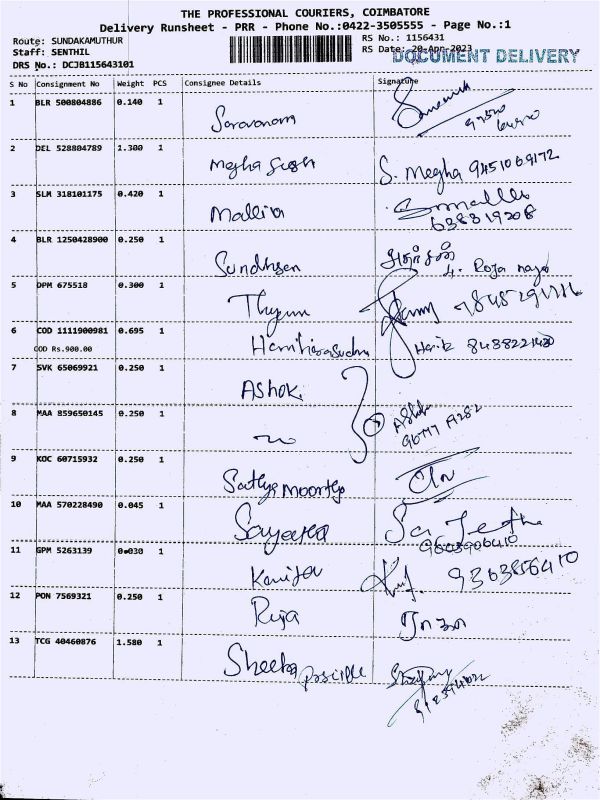 THE PROFESSIONAL COURIERS, COIMBATORE
Delivery Runsheet - PRR - Phone No.:0422-3505555 - Page No.:1
Route: SUNDAKAMUTHUR
Staff: SENTHIL
DRS No.: DCJB115643101
RS No.: 1156431
RS Date: 20-Apr-2023
DOCUMENT DELIVERY
S No Consignment No Weight PCS Consignee Details Signature
1 BLR 500804886 0.140 1 Saravanan
2 DEL 528804789 1.300 1 Megha Singh S. Megha 9451069172
3 SLM 318101175 0.420 1 Malliva
638319208
4 BLR 1250428900 0.250 1 Sundhsen
4. Roja nagar
5 DPM 675518 0.300 1
6 COD 1111900981 0.695 1 Harik 8438221430
COD Rs.900.00
7 SVK 65069921 0.250 1 Ashok
8 MAA 859650145 0.250 1
9 KOC 60715932 0.250 1 Sathya moorthy
10 MAA 570228490 0.045 1
11 GPM 5263139 0.030 1 9363856410
12 PON 7569321 0.250 1 Roja ரோஜா
13 TCG 40460876 1.580 1 Sheeba